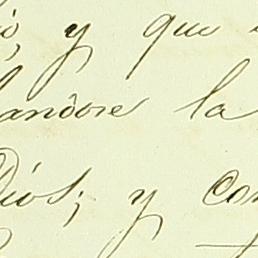 ió, y que
landose la
Dios; y con